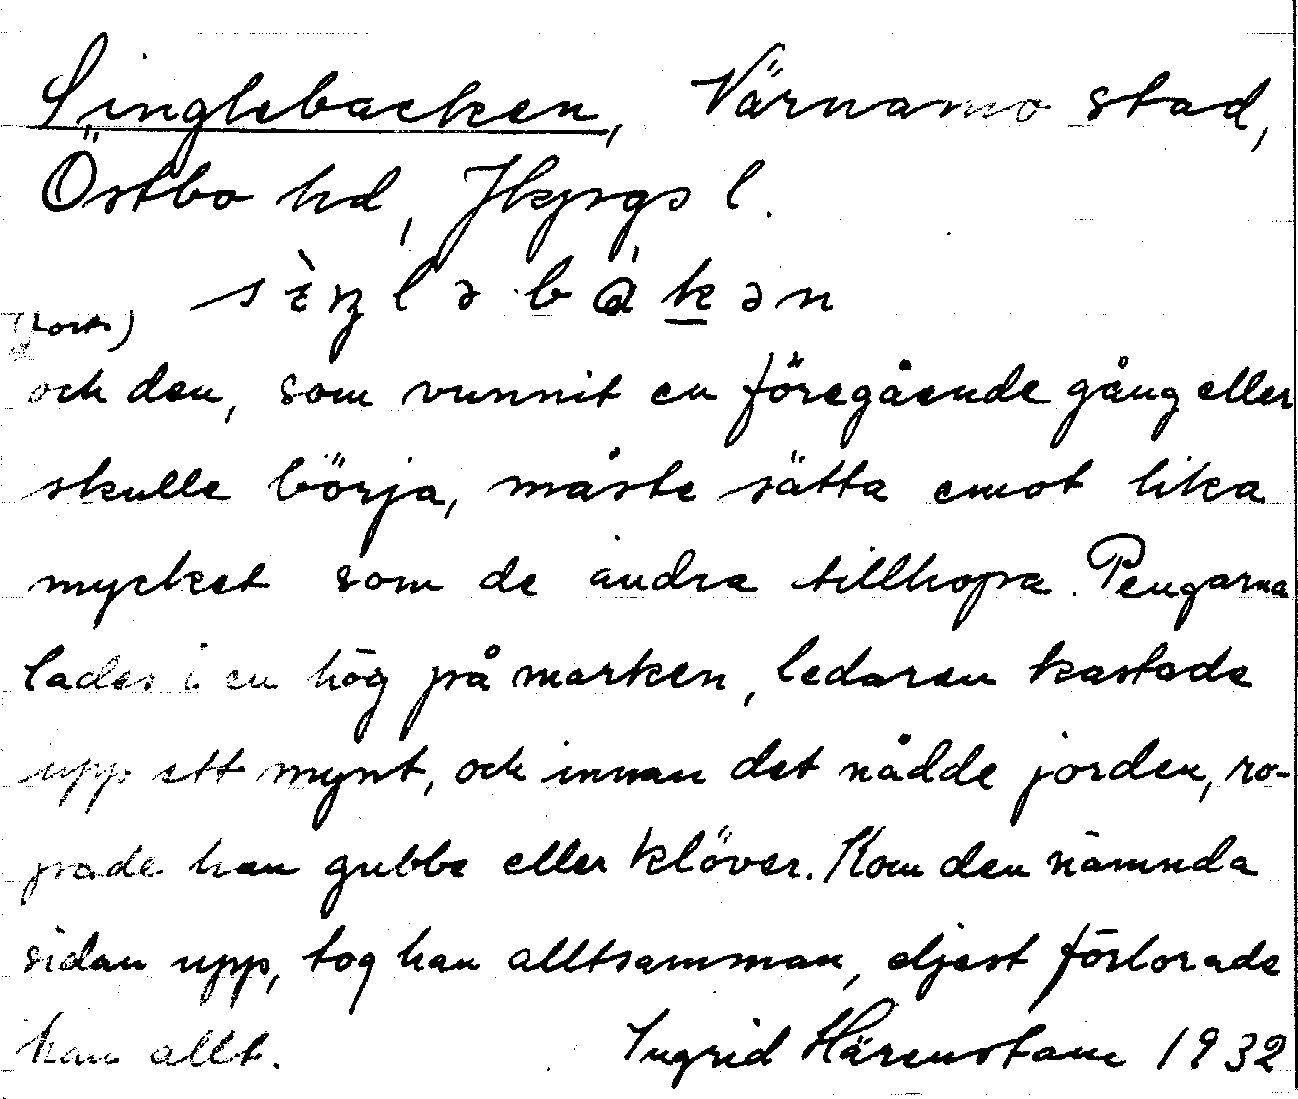 Singlebacken, Värnamo stad,
Östbo hd, Jkpgs l.
sìŋləbákən
(forts)
och den, som vunnit en föregående gång eller
skulle börja, måste sätta emot lika
mycket som de andra tillhopa. Pengarna
lades i en hög på marken, ledaren kastade
upp ett mynt, och innan det nådde jorden, ro-
pade han gubbe eller klöver. Kom den nämnda
sidan upp, tog han alltsamman, eljest förlorade
han allt.
Ingrid Härenstam 1932